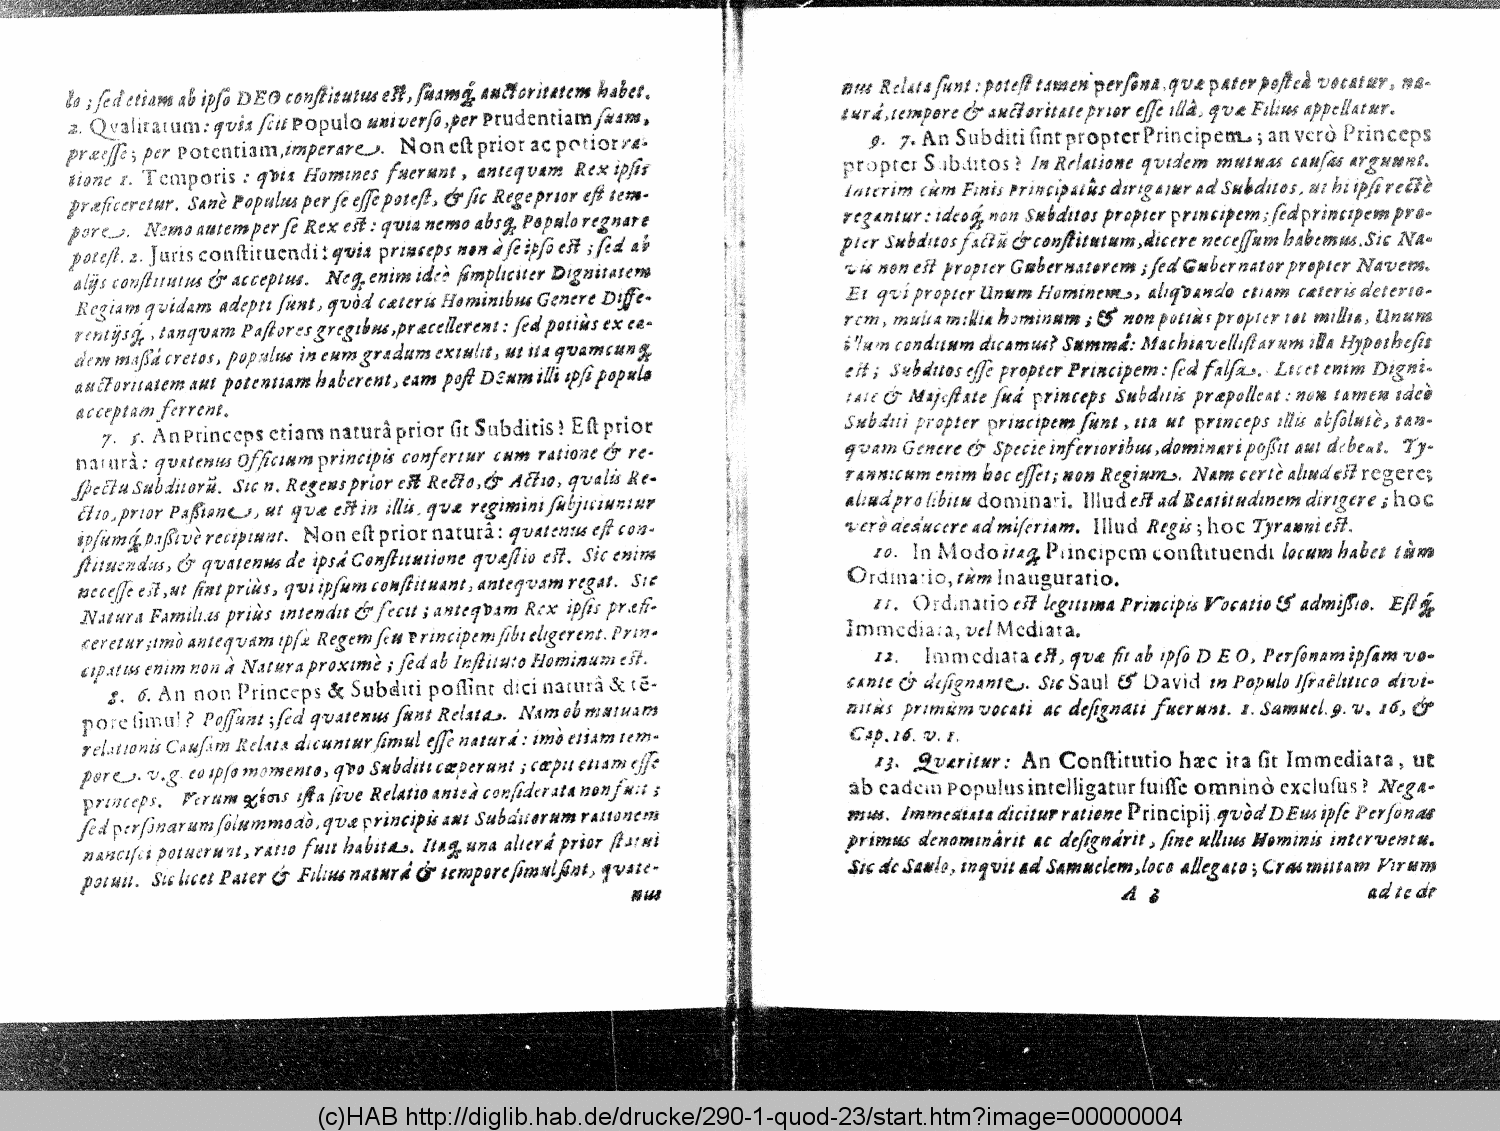 lo ; ſed etiam ab ipſo DEO conſtitutus eſt, ſuamq́; auctoritatem habet.
2. Qvalitatum: quia ſcil Populo univerſo, per Prudentiam ſuam,
præeſſe; per Potentiam, imperare. Non eſt prior ac potior ra-
tione 1. Temporis : qvia Homines fuerunt, antequam Rex ipſis
præficeretur. Sanè Populus per ſe eſſe poteſt, & ſic Rege prior eſt tem-
pore. Nemo autem per ſe Rex eſt: quia nemo absq; Populo regnare
poteſt. 2. Juris conſtituendi: quia princeps non à ſe ipſo eſt ; ſed ab
alijs conſtitutus & acceptus. Neq; enim ideò ſimpliciter Dignitatem
Regiam quidam adepti ſunt, quòd cæteris Hominibus Genere Diffe-
rentijsq́;, tanquam Paſtores gregibus, præcellerent: ſed potiùs ex ea-
dem maßâ cretos, populus in eum gradum extulit, ut ita quamcunq́;
auctoritatem aut potentiam haberent, eam poſt DEum illi ipſi populo
acceptam ferrent.
7. 5. An Princeps etiam naturâ prior ſit Subditis? Eſt prior
naturâ: quatenus Officium principis confertur cum ratione & re-
ſpectu Subditorũ. Sic n. Regens prior eſt Recto, & Actio, qualis Re-
ctio, prior Paßione, ut quæ eſt in illis, quæ regimini ſubjiciuntur
ipſumq́; paßivè recipiunt. Non eſt prior naturâ: quatenus eſt con-
ſtituendus, & quatenus de ipsâ Conſtitutione quæſtio eſt. Sic enim
neceſſe eſt, ut ſint priùs, qui ipſum conſtituant, antequam regat. Sic
Natura Familias priùs intendit & fecit ; anteqvam Rex ipſis præfi-
ceretur; imò antequam ipſæ Regem ſeu Principem ſibi eligerent. Prin-
cipatus enim non à Natura proximè ; ſed ab Inſtituto Hominum eſt.
8. 6. An non Princeps & Subditi poſſint dici naturâ & tẽ-
pore ſimul? Poſſunt; ſed quatenus ſunt Relata. Nam ob mutuam
relationis Cauſam Relata dicuntur ſimul eſſe naturâ: imò etiam tem-
pore. v. g. eo ipſo momento, qvo Subditi cœperunt ; cœpit etiam eſſe
princeps. Verum χέσις iſta ſive Relatio anteà conſiderata non fuit ;
ſed perſonarum ſolummodò, quæ principis aut Subditorum rationem
nanciſci potuerunt, ratio fuit habita. Itaq; una alterâ prior ſtatui
potuit. Sic licet Pater & Filius naturâ & tempore ſimul ſint, quate-
nus
nus Relata ſunt: poteſt tamen perſona, quæ pater poſteà vocatur, na-
turâ, tempore & auctoritate prior eſſe illâ, quæ Filius appellatur.
9. 7. An Subditi ſint propter Principem; an verò Princeps
propter Subditos? In Relatione quidem mutuas cauſas arguunt.
Interim cùm Finis Principatûs dirigatur ad Subditos, ut hi ipſi rectè
regantur: ideoq́; non Subditos propter principem; ſed principem pro-
pter Subditos factũ & conſtitutum, dicere neceſſum habemus. Sic Na-
vis non eſt propter Gubernatorem ; ſed Gubernator propter Navem.
Et qvi propter Unum Hominem, aliqvando etiam cæteris deterio-
rem, multa millia hominum ; & non potiùs propter tot millia, Unum
illum conditum dicamus? Summâ: Machiavelliſtarum illa Hypotheſis
eſt; Subditos eſſe propter Principem: ſed falſa. Licet enim Digni-
tate & Majeſtate ſuâ princeps Subditis præpolleat: non tamen ideò
Subditi propter principem ſunt, ita ut princeps illis abſolutè, tan-
quam Genere & Specie inferioribus, dominari poßit aut debeat. Ty-
rannicum enim hoc eſſet; non Regium. Nam certè aliud eſt regere;
aliud pro libitu dominari. Illud eſt ad Beatitudinem dirigere; hoc
verò deducere ad miſeriam. Illud Regis; hoc Tyranni eſt.
10. In Modo itaq; Principem conſtituendi locum habet tùm
Ordinatio, tùm Inauguratio.
11. Ordinatio eſt legitima Principis Vocatio & admißio. Eſtq́;
Immediata, vel Mediata.
12. Immediata eſt, quæ fit ab ipſo DEO, Perſonam ipſam vo-
cante & deſignante. Sic Saul & David in Populo Iſraëlitico divi-
nitùs primùm vocati ac deſignati fuerunt. 1. Samuel. 9. v. 16, &
Cap. 16. v. 1.
13. Quæritur: An Conſtitutio hæc ita ſit Immediata, ut
ab eadem Populus intelligatur fuiſſe omninò excluſus? Nega-
mus. Immediata dicitur ratione Principij quòd DEus ipſe Perſonas
primus denominârit ac deſignârit, ſine ullius Hominis interventu.
Sic de Saulo, inqvit ad Samuelem, loco allegato; Cras mittam Virum
A 3 ad te de
(c)HAB http://diglib.hab.de/drucke/290-1-quod-23/start.htm?image=00000004